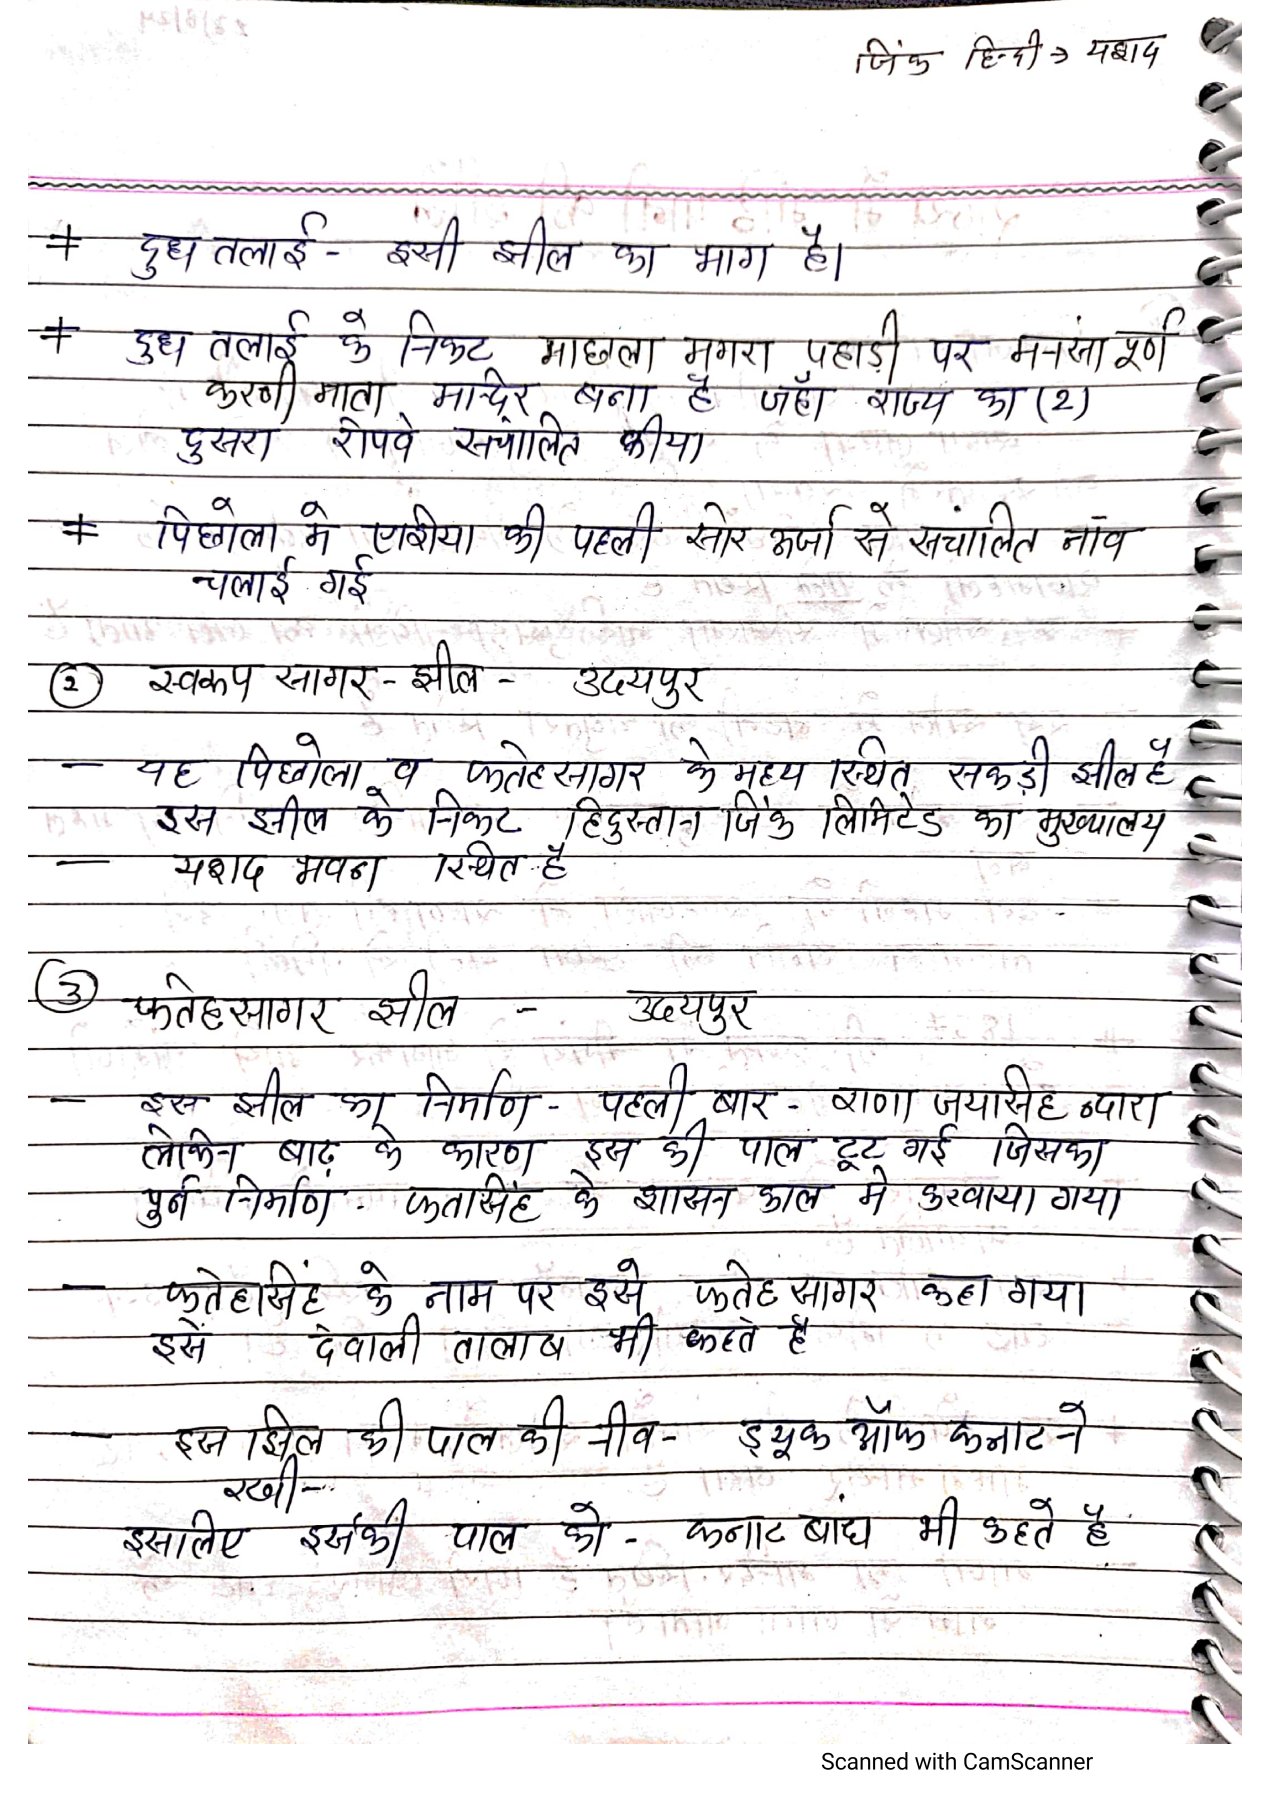 जिंक हिन्दी → यशद
+ दुध तलाई - इसी झील का भाग है।
+ दुध तलाई के निकट माछला मगरा पहाड़ी पर मनसा पूर्ण
करणी माता मन्दिर बना है जहाँ राज्य का (2)
दुसरा रोपवे संचालित कीया
+ पिछोला मे एशीया की पहली सोर ऊर्जा से संचालित नांव
चलाई गई
(2) स्वरूप सागर - झील - उदयपुर
- यह पिछोला व फतेहसागर के मध्य स्थित सकड़ी झील है
इस झील के निकट हिंदुस्तान जिंक लिमिटेड का मुख्यालय
- यशद भवन स्थित है
(3) फतेहसागर झील - उदयपुर
- इस झील का निर्माण - पहली बार - राणा जयसिंह द्वारा
लेकिन बाढ़ के कारण इस की पाल टूट गई जिसका
पुर्न निर्माण - फतासिंह के शासन काल मे करवाया गया
- फतेहसिंह के नाम पर इसे फतेह सागर कहा गया
इसे देवाली तालाब भी कहते है
- इस झिल की पाल की नीव - ड्यूक ऑफ कनाट ने
रखी -
इसलिए इसकी पाल को - कनाट बांध भी कहते है
Scanned with CamScanner